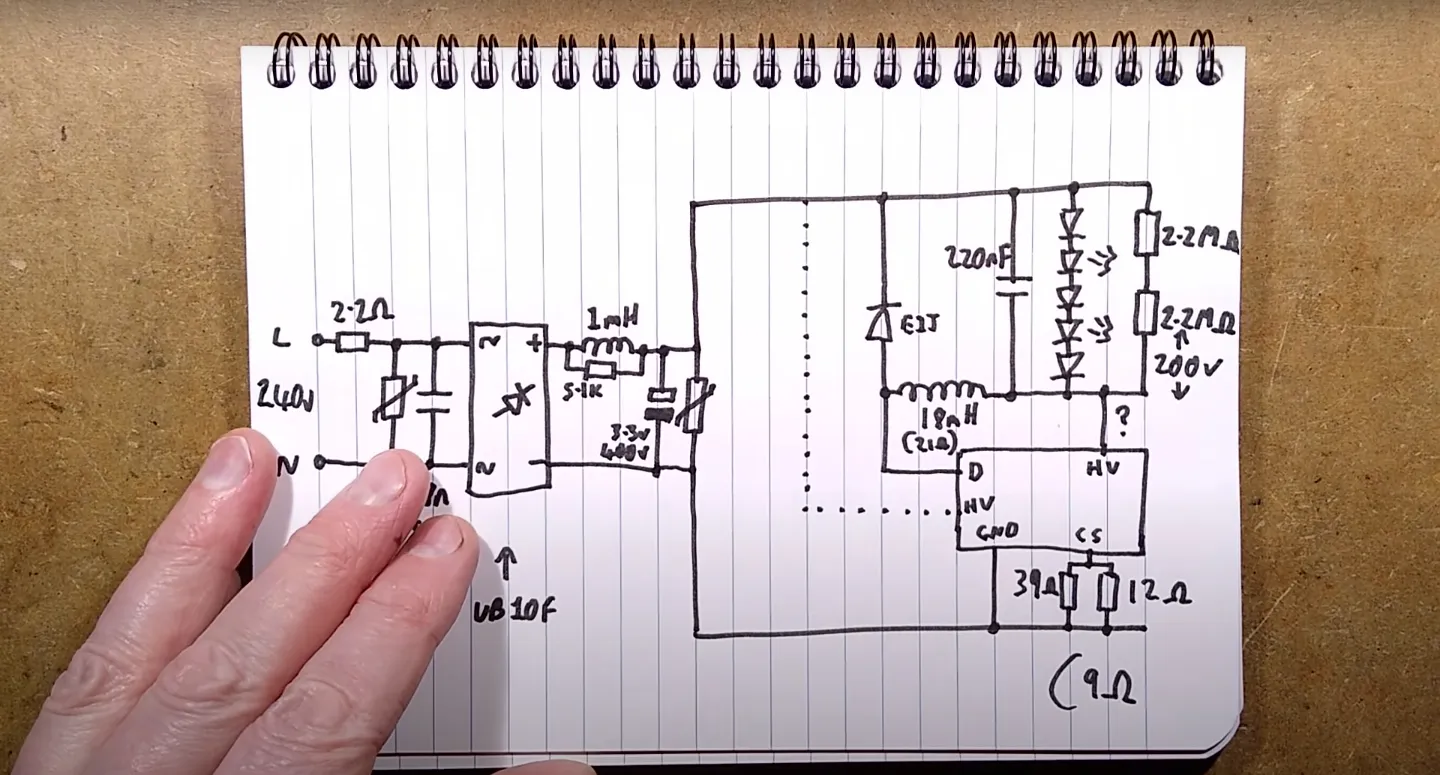 2.2Ω
L
240V
N
~
+
~
-
UB10F
1mH
5.1K
400V
E1J
220nF
2.2MΩ
2.2MΩ
200V
18mH
(21Ω)
?
D
HV
HV
GND
CS
39Ω
12Ω
(9Ω